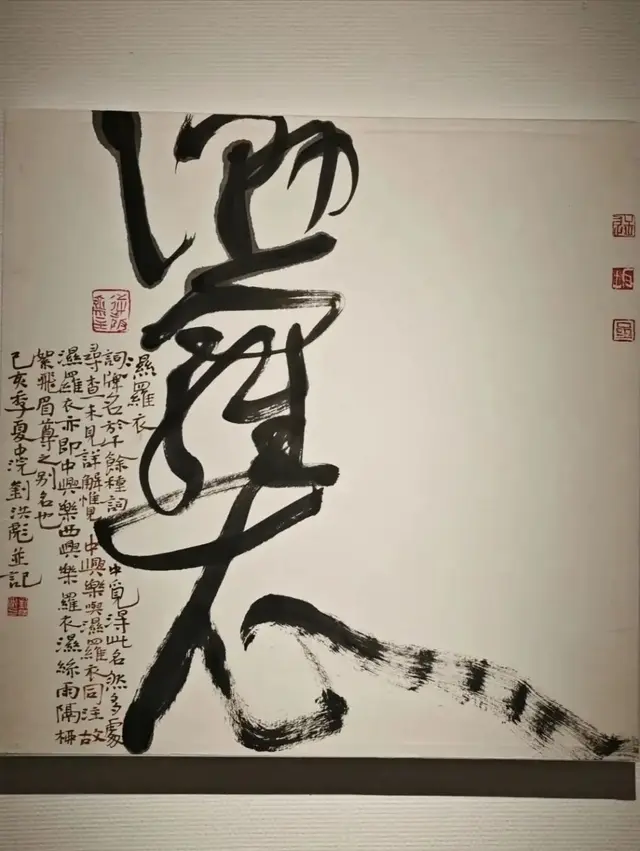 濕羅衣
濕羅衣
詞牌名於千餘種詞中覓得此名然多處
尋查未見詳解惟見中興樂濕羅衣同注故
濕羅衣亦即中興樂西興樂羅衣濕絲雨隔
絮飛眉尊之別名也
己亥季夏中浣劉洪彪並記